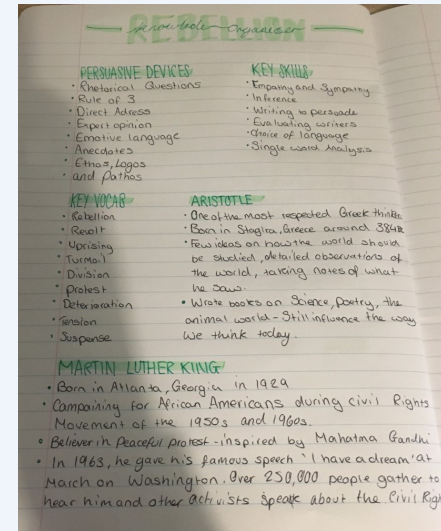 REBELLION
knowledge organiser
PERSUASIVE DEVICES
• Rhetorical Questions
• Rule of 3
• Direct Adress
• Expert opinion
• Emotive language
• Anecdotes
• Ethos, Logos
• and Pathos
KEY SKILLS
• Empathy and Sympathy
• Inference
• Writing to persuade
• Evaluating writers
• choice of language
• Single word Analysis
KEY VOCAB
• Rebellion
• Revolt
• Uprising
• Turmoil
• Division
• protest
• Deterioration
• Tension
• Suspense
ARISTOTLE
• One of the most respected Greek
• Born in Stagira, Greece around
• Few ideas on how the world should
be studied, detailed observations of
the world, taking notes of what
he saw.
• Wrote books on Science, poetry, the
animal world - Still influence the way
we think today.
MARTIN LUTHER KING
• Born in Atlanta, Georgia in 1929
• Campaining for African Americans during civil Rights
Movement of the 1950s and 1960s.
• Believer in Peaceful protest - inspired by Mahatma Gandhi
• In 1963, he gave his famous speech 'I have a dream' at
March on Washington. Over 250,000 people gather to
hear him and other activists speak about the Civil